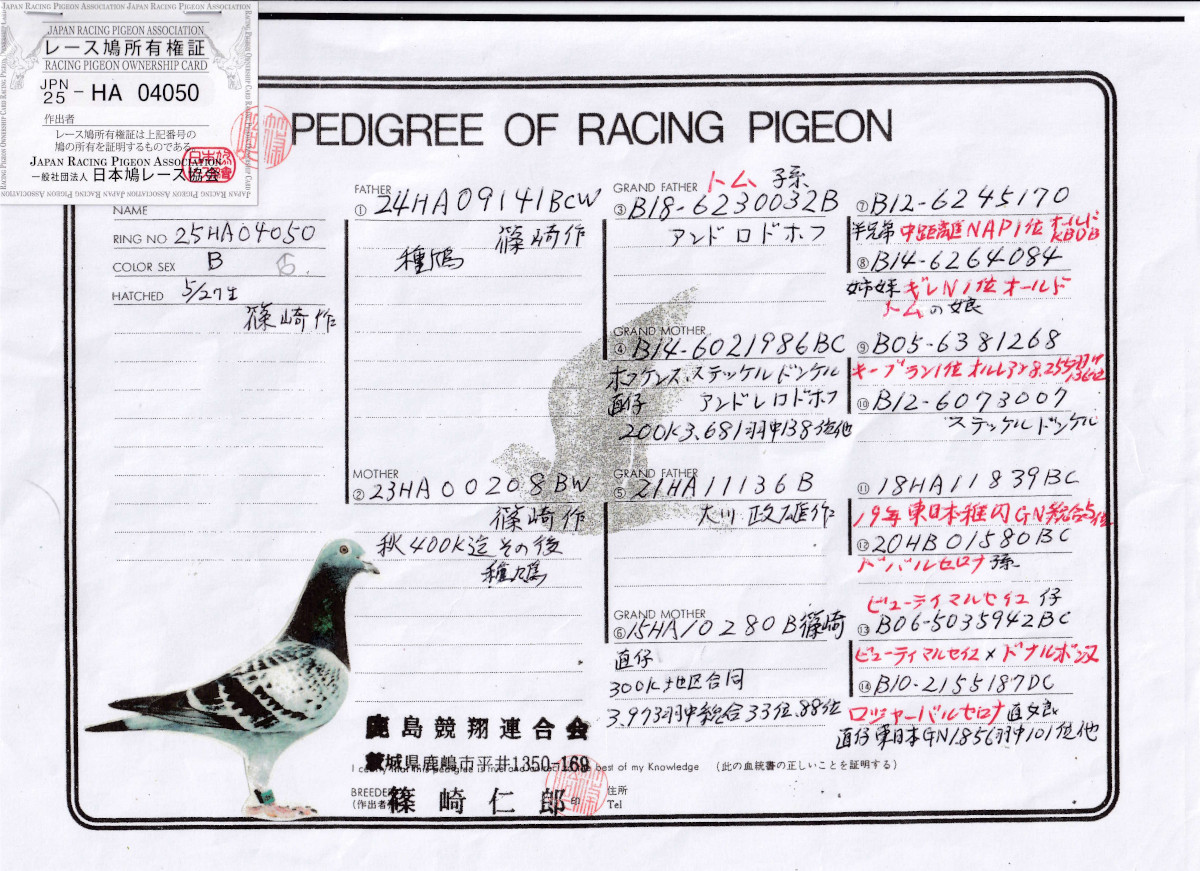 JAPAN RACING PIGEON ASSOCIATION JAPAN RACING PIGEON ASSOCIATION
JAPAN RACING PIGEON ASSOCIATION
レース鳩所有権証
RACING PIGEON OWNERSHIP CARD
JPN
25 - HA 04050
作出者
レース鳩所有権証は上記番号の
鳩の所有を証明するものである
JAPAN RACING PIGEON ASSOCIATION
一般社団法人 日本鳩レース協会
PEDIGREE OF RACING PIGEON
NAME
RING NO 25HA04050
COLOR SEX B ♂
HATCHED 5/27生
篠崎作
FATHER
① 24HA09141BCW
篠崎作
種鳩
MOTHER
② 23HA00208BW
篠崎作
秋400K迄その後
種鳩
GRAND FATHER トム 孫
③ B18-6230032B
アンドロドホフ
GRAND MOTHER
④ B14-6021986BC
ホフケンス・ステッケルドンケル
直仔 アンドレロドホフ
200K3,681羽中138位他
GRAND FATHER
⑤ 21HA11136B
大川政雄作
GRAND MOTHER
⑥ 15HA10280B篠崎
直仔
300K地区合同
3,973羽中総合33位、88位
⑦ B12-6245170
半兄弟 中距離NAP1位 オールド
KBDB
⑧ B14-6264084
姉妹 ギレN1位オールド
トムの娘
⑨ B05-6381268
キーブラン1位 オルレアン8,255羽中
136位
⑩ B12-6073007
ステッケルドンケル
⑪ 18HA11839BC
19年東日本稚内GN総合5位
⑫ 20HB01580BC
ドバルセロナ孫
ビューティマルセイユ 仔
⑬ B06-5035942BC
ビューティマルセイユ×ドナルボンヌ
⑭ B10-2155187DC
ロジャーバルセロナ直女良
直仔東日本GN1856羽中101位他
鹿島競翔連合会
茨城県鹿嶋市平井1350-169
best of my Knowledge (此の血統書の正しいことを証明する)
BREEDER
(作出者) 篠崎仁郎 印
住所
Tel